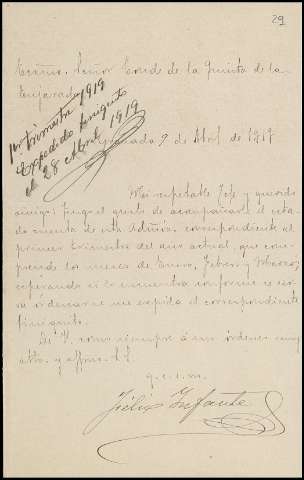 29
Excmo. Señor Conde de la Quinta de la
Enjarada
1er trimestre 1919
Expedido finiquito
el 28 Abril 1919
Granada 9 de Abril de 1919
Mi respetable Jefe y querido
amigo: tengo el gusto de acompañar el esta
do cuenta de esta Admón. correspondiente al
primer trimestre del año actual, que com-
prende los meses de Enero, Febrero y Marzo,
esperando si lo encuentra conforme se sir-
va ordenar se me expida el correspondiente
finiquito.
De V. como siempre a sus órdenes muy
atto. y affmo. s.s.
q.e.s.m.
Félix Infante